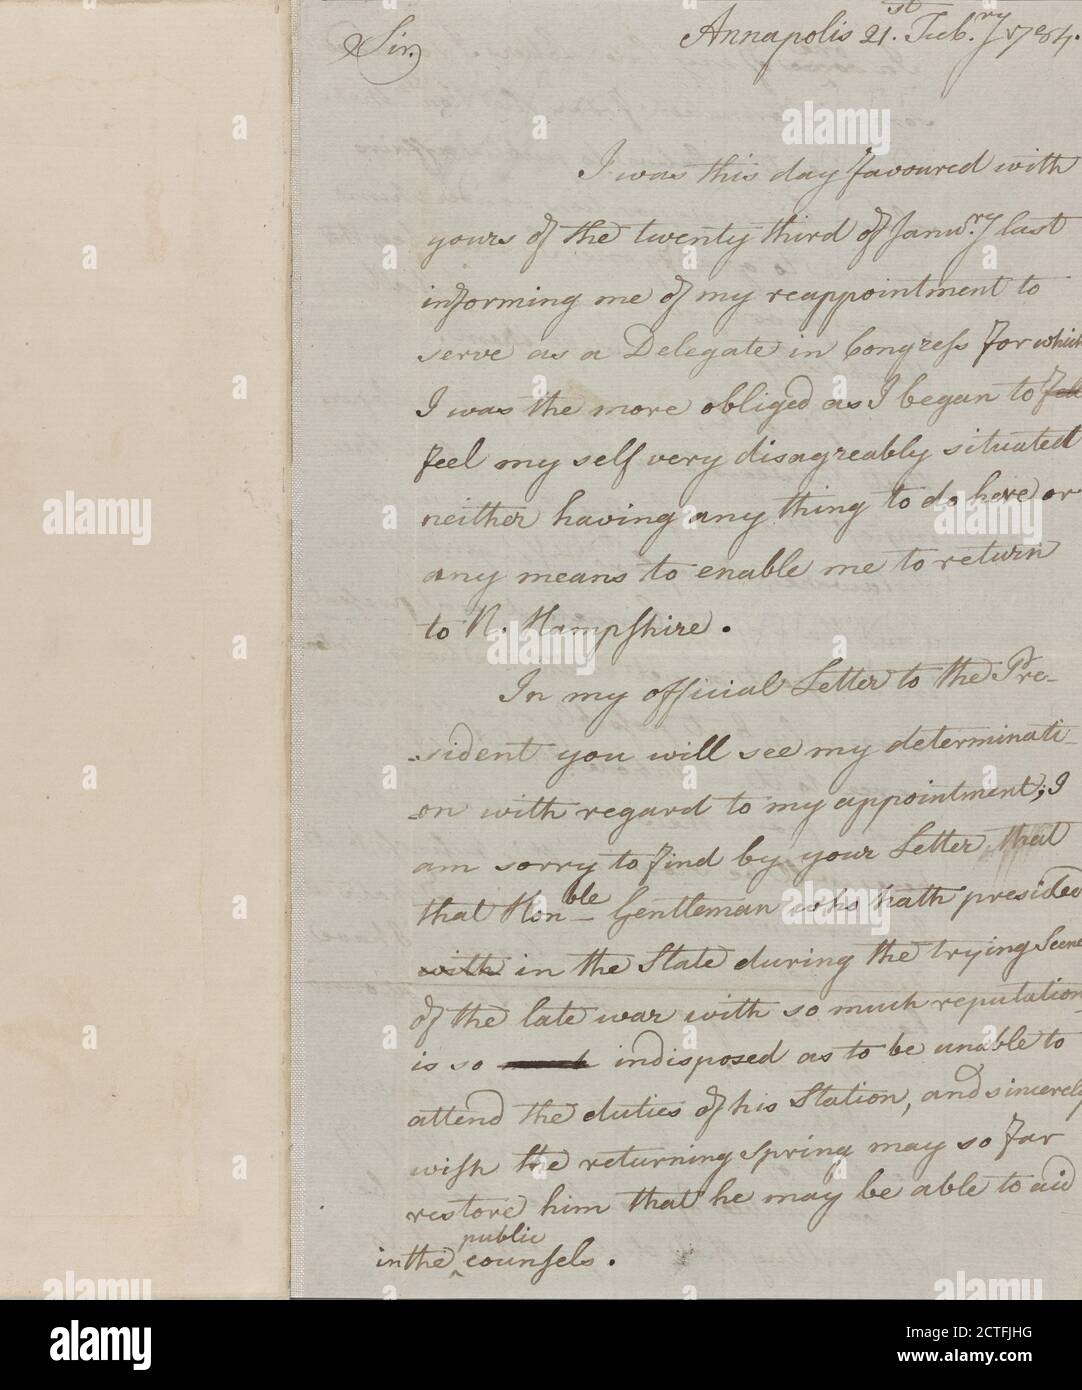 Sir. Annapolis 21.st Feb.ry 1784.
I was this day favoured with
yours of the twenty third of Janu.ry last
informing me of my reappointment to
serve as a Delegate in Congress for which
I was the more obliged as I began to
feel my self very disagreably situated
neither having any thing to do here or
any means to enable me to return
to N. Hampshire.
In my official Letter to the Pre-
-sident you will see my determinati-
-on with regard to my appointment; I
am sorry to find by your Letter that
that Honble Gentleman who hath presided
with in the State during the trying Scene
of the late war with so much reputation
is so indisposed as to be unable to
attend the duties of his Station, and sincerely
wish the returning Spring may so far
restore him that he may be able to aid
in the public counsels.
alamy
a
Image ID: 2CTFJHG
www.alamy.com